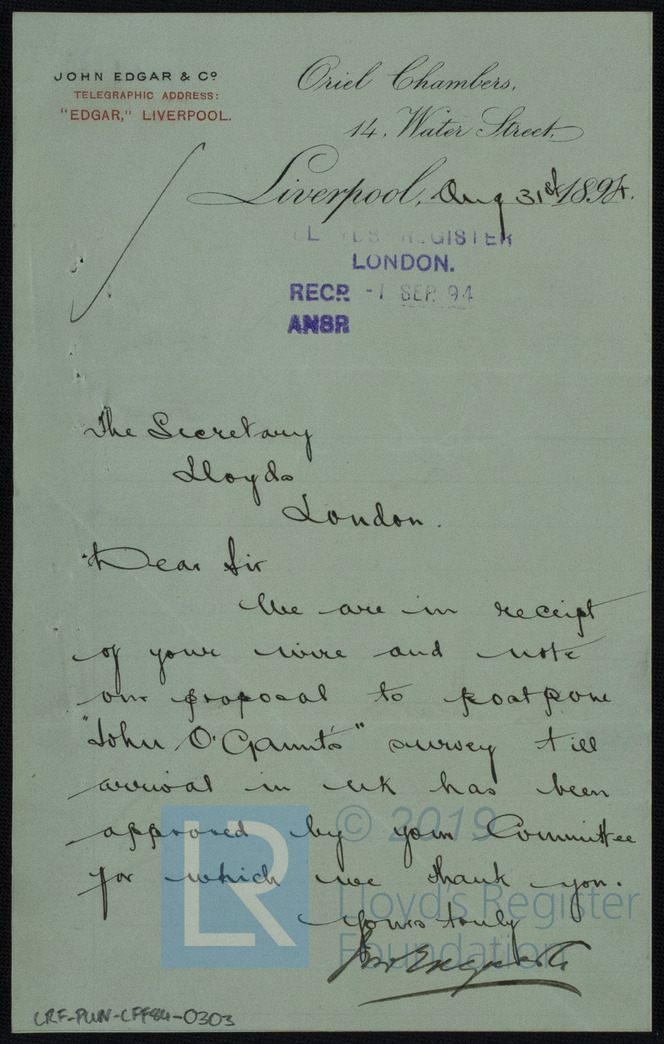 JOHN EDGAR & Co
TELEGRAPHIC ADDRESS:
"EDGAR," LIVERPOOL.
Oriel Chambers,
14, Water Street,
Liverpool, Aug 31st 1894.
REGISTER
LONDON.
RECD -1 SEP. 94
ANSR
The Secretary
Lloyds
London.
Dear Sir
We are in receipt
of your wire and note
our proposal to postpone
"John O'Gaunt's" survey till
arrival in UK has been
approved by your Committee
for which we thank you.
Yours truly
Jno Edgar & Co
LRF-PUN-LFF84-0303
LR
© 2019
Lloyd's Register
Foundation